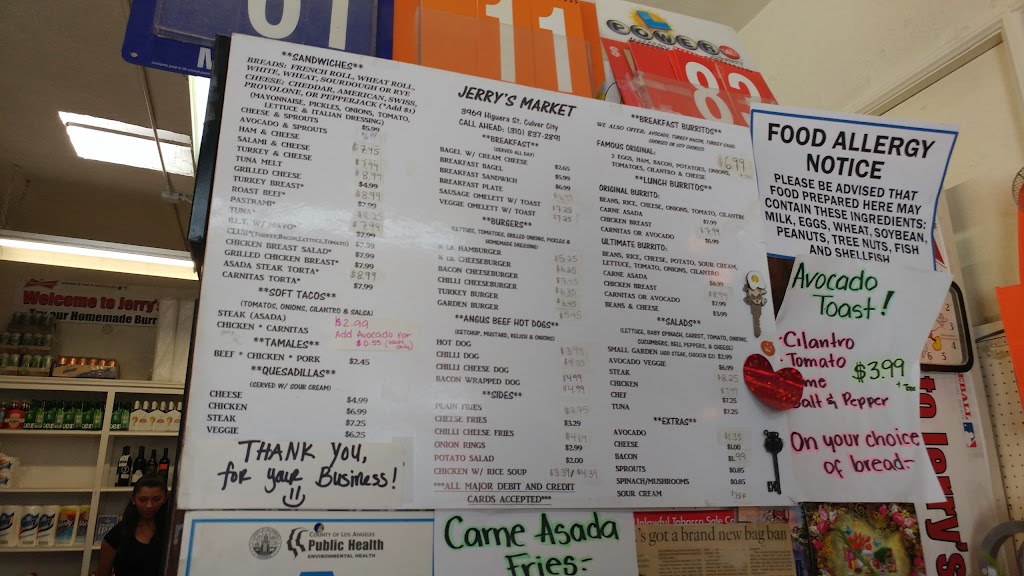 11
$
83
POWER
**SANDWICHES**
BREADS: FRENCH ROLL, WHEAT ROLL,
WHITE, WHEAT, SOURDOUGH OR RYE
CHEESE: CHEDDAR, AMERICAN, SWISS,
PROVOLONE, OR PEPPERJACK (*Add $1)
(MAYONNAISE, PICKLES, ONIONS, TOMATO,
LETTUCE & ITALIAN DRESSING)
CHEESE & SPROUTS $5.99
AVOCADO & SPROUTS
HAM & CHEESE $7.45
SALAMI & CHEESE
TURKEY & CHEESE 7.99
TUNA MELT $8.99
GRILLED CHEESE $4.99
TURKEY BREAST* $8.99
ROAST BEEF* $7.99
PASTRAMI* $8.25
TUNA*
B.L.T. W/MAYO* $7.99
CLUB*(Turkey,Bacon,Lettuce,Tomato) $7.79
CHICKEN BREAST SALAD* $7.99
GRILLED CHICKEN BREAST* $7.99
ASADA STEAK TORTA* $8.99
CARNITAS TORTA* $7.99
**SOFT TACOS**
(TOMATOS, ONIONS, CILANTRO & SALSA)
STEAK (ASADA)
CHICKEN * CARNITAS
$2.99
Add Avocado for
$0.55
**TAMALES**
BEEF * CHICKEN * PORK $2.45
**QUESADILLAS**
(SERVED W/ SOUR CREAM)
CHEESE $4.99
CHICKEN $6.99
STEAK $7.25
VEGGIE $6.25
THANK YOU,
for your Business!
JERRY'S MARKET
3964 Higuera St. Culver City
CALL AHEAD: (310) 837-2891
**BREAKFAST**
(SERVED ALL DAY)
BAGEL W/ CREAM CHEESE $2.65
BREAKFAST BAGEL $5.99
BREAKFAST SANDWICH $6.99
BREAKFAST PLATE
SAUSAGE OMELETT W/ TOAST $7.25
VEGGIE OMELETT W/ TOAST $7.25
**BURGERS**
(LETTUCE, TOMATOES, GRILLED ONION, PICKLES &
HOMEMADE DRESSING)
HAMBURGER $5.25
CHEESEBURGER
BACON CHEESEBURGER
CHILI CHEESEBURGER
TURKEY BURGER
GARDEN BURGER $5.45
**ANGUS BEEF HOT DOGS**
(KETCHUP, MUSTARD, RELISH & ONIONS)
HOT DOG $3.99
CHILLI DOG
CHILI CHEESE DOG $4.99
BACON WRAPPED DOG $4.99
**SIDES**
PLAIN FRIES
CHEESE FRIES $3.29
CHILLI CHEESE FRIES
ONION RINGS $2.99
POTATO SALAD $2.00
CHICKEN W/ RICE SOUP $3.39/$4.39
***ALL MAJOR DEBIT AND CREDIT
CARDS ACCEPTED***
**BREAKFAST BURRITOS**
WE ALSO OFFER: AVOCADO, TURKEY BACON, TURKEY SAUSG.
CHORIZO, OR SOY CHORIZO
FAMOUS ORIGINAL:
2 EGGS, HAM, BACON, POTATOES, ONIONS,
TOMATOES, CILANTRO & CHEESE
$6.99
**LUNCH BURRITOS**
ORIGINAL BURRITO:
BEANS, RICE, CHEESE, ONIONS, TOMATO, CILANTRO
CARNE ASADA $7.99
CHICKEN BREAST $7.99
CARNITAS OR AVOCADO $6.99
ULTIMATE BURRITO:
BEANS, RICE, CHEESE, POTATO, SOUR CREAM,
LETTUCE, TOMATO, ONIONS, CILANTRO
CARNE ASADA
CHICKEN BREAST $8.99
CARNITAS OR AVOCADO $7.99
BEANS & CHEESE $3.99
**SALADS**
(LETTUCE, BABY SPINACH, CARROT, TOMATO, ONIONS,
CUCUMBERS, BELL PEPPERS, & CHEESE)
SMALL GARDEN (ADD STEAK, CHICKEN $2) $2.99
AVOCADO VEGGIE $6.99
STEAK $8.25
CHICKEN $7.99
CHEF $7.25
TUNA $7.25
**EXTRAS**
AVOCADO $1.35
CHEESE $1.00
BACON $1.99
SPROUTS $0.85
SPINACH/MUSHROOMS $0.85
SOUR CREAM
FOOD ALLERGY
NOTICE
PLEASE BE ADVISED THAT
FOOD PREPARED HERE MAY
CONTAIN THESE INGREDIENTS:
MILK, EGGS, WHEAT, SOYBEAN,
PEANUTS, TREE NUTS, FISH
AND SHELLFISH
Avocado
Toast!
-Cilantro
-Tomato
-Lime
Salt & Pepper
$3.99
+ Tax
On your choice
of bread-
Welcome to Jerry's
our Homemade Burr
COUNTY OF LOS ANGELES
Public Health
ENVIRONMENTAL HEALTH
Carne Asada
Fries-
's got a brand new bag ban
to Jerry's